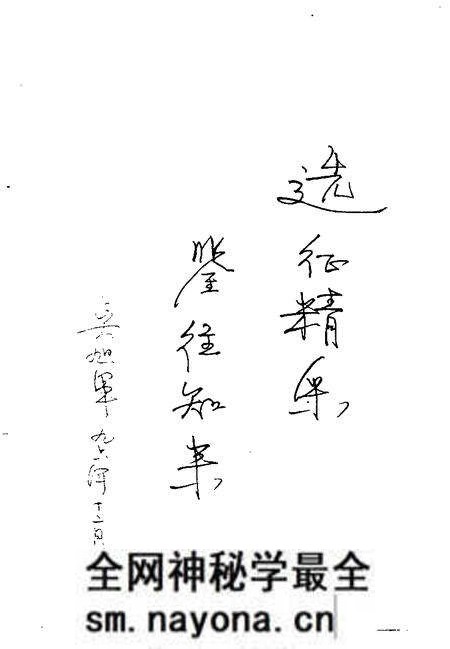 选征精
鉴往知来
吴旭军 九六年十二月
全网神秘学最全
sm.nayona.cn